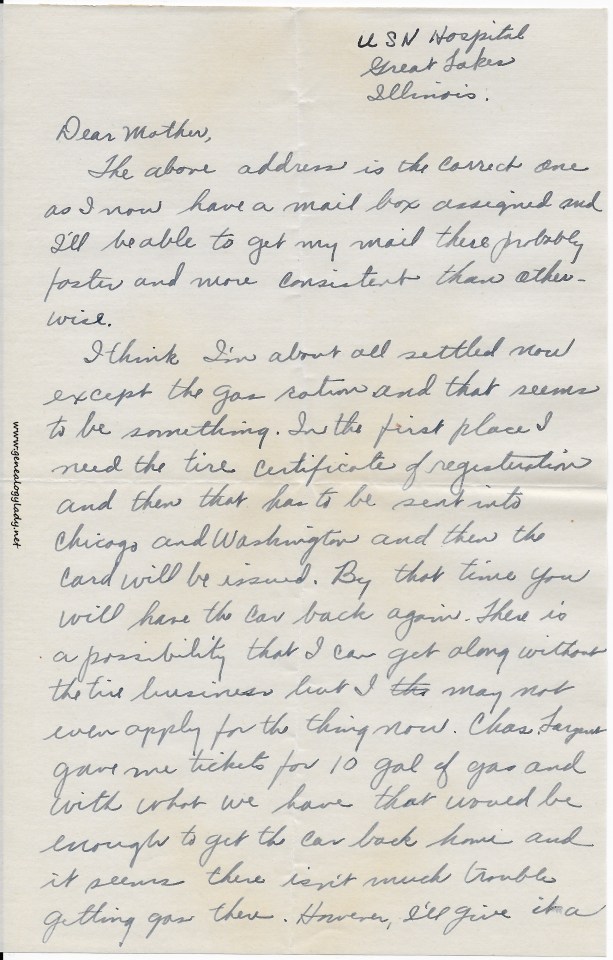 USN Hospital
Great Lakes
Illinois.
Dear Mother,
The above address is the correct one
as I now have a mail box assigned and
I'll be able to get my mail there probably
faster and more consistent than other-
wise.
I think I'm about all settled now
except the gas ration and that seems
to be something. In the first place I
need the tire certificate of registration
and then that has to be sent into
Chicago and Washington and then the
card will be issued. By that time you
will have the car back again. There is
a possibility that I can get along without
the tire business but I may not
even apply for the thing now. Chas Sargent
gave me tickets for 10 gal of gas and
with what we have that would be
enough to get the car back home and
it seems there isn't much trouble
getting gas there. However, I'll give it a
www.genealogylady.net